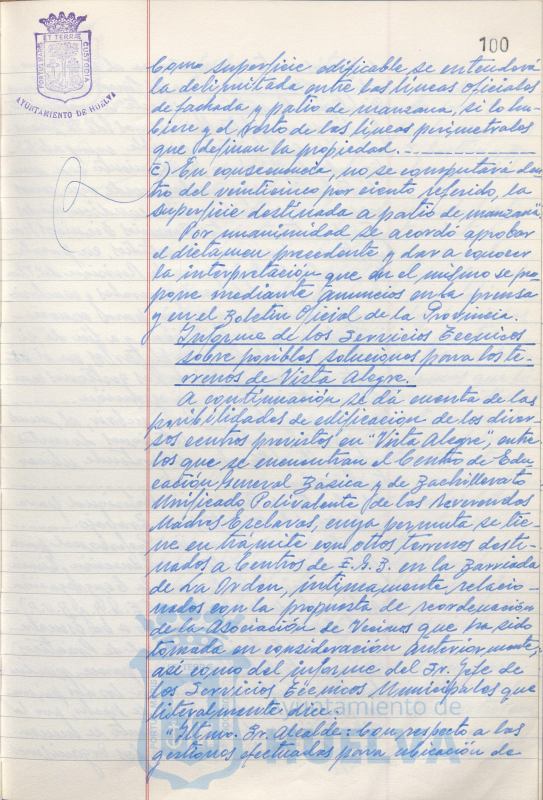 100
AYUNTAMIENTO DE HUELVA
Como superficie edificable se entenderá
la delimitada entre las líneas oficiales
de fachada y patio de manzana, si lo hu-
biere y el resto de las líneas perimetrales
que definan la propiedad.
c) En consecuencia, no se computará den-
tro del veinticinco por ciento referido, la
superficie destinada a patio de manzana".
Por unanimidad se acordó aprobar
el dictamen precedente y dar a conocer
la interpretación que en el mismo se pro-
pone mediante anuncios en la prensa
y en el Boletín Oficial de la Provincia.
Informe de los Servicios Tecnicos
sobre posibles soluciones para los te-
rrenos de Vista Alegre.
A continuación se dá cuenta de las
posibilidades de edificación de los diver-
sos centros previstos en "Vista Alegre", entre
los que se encuentran el Centro de Edu-
cación General Basica y de Bachillerato
Unificado Polivalente de las Reverendas
Madres Esclavas, cuya permuta se tie-
ne en trámite con otros terrenos desti-
nados a Centros de E.G.B. en la Barriada
de La Orden, íntimamente relacio-
nados con la propuesta de reordenación
de la Asociación de Vecinos que ha sido
tomada en consideración anteriormente;
así como del informe del Sr. Jefe de
los Servicios Técnicos Municipales que
literalmente dice:
"Iltmo. Sr. Alcalde: Con respecto a las
gestiones efectuadas para ubicación de
Ayuntamiento de
HUELVA